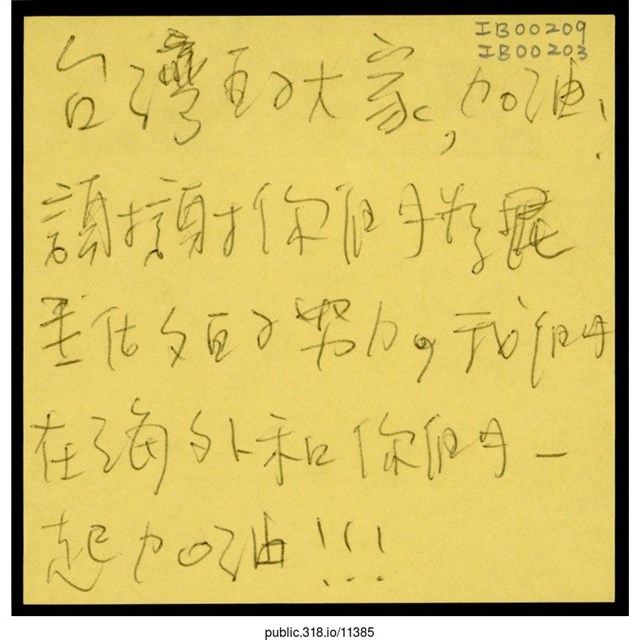 IB00209
IB00203
台灣的大家,加油!
謝謝你們為
做的努力。我們
在海外和你們一
起加油!!!
public.318.io/11385